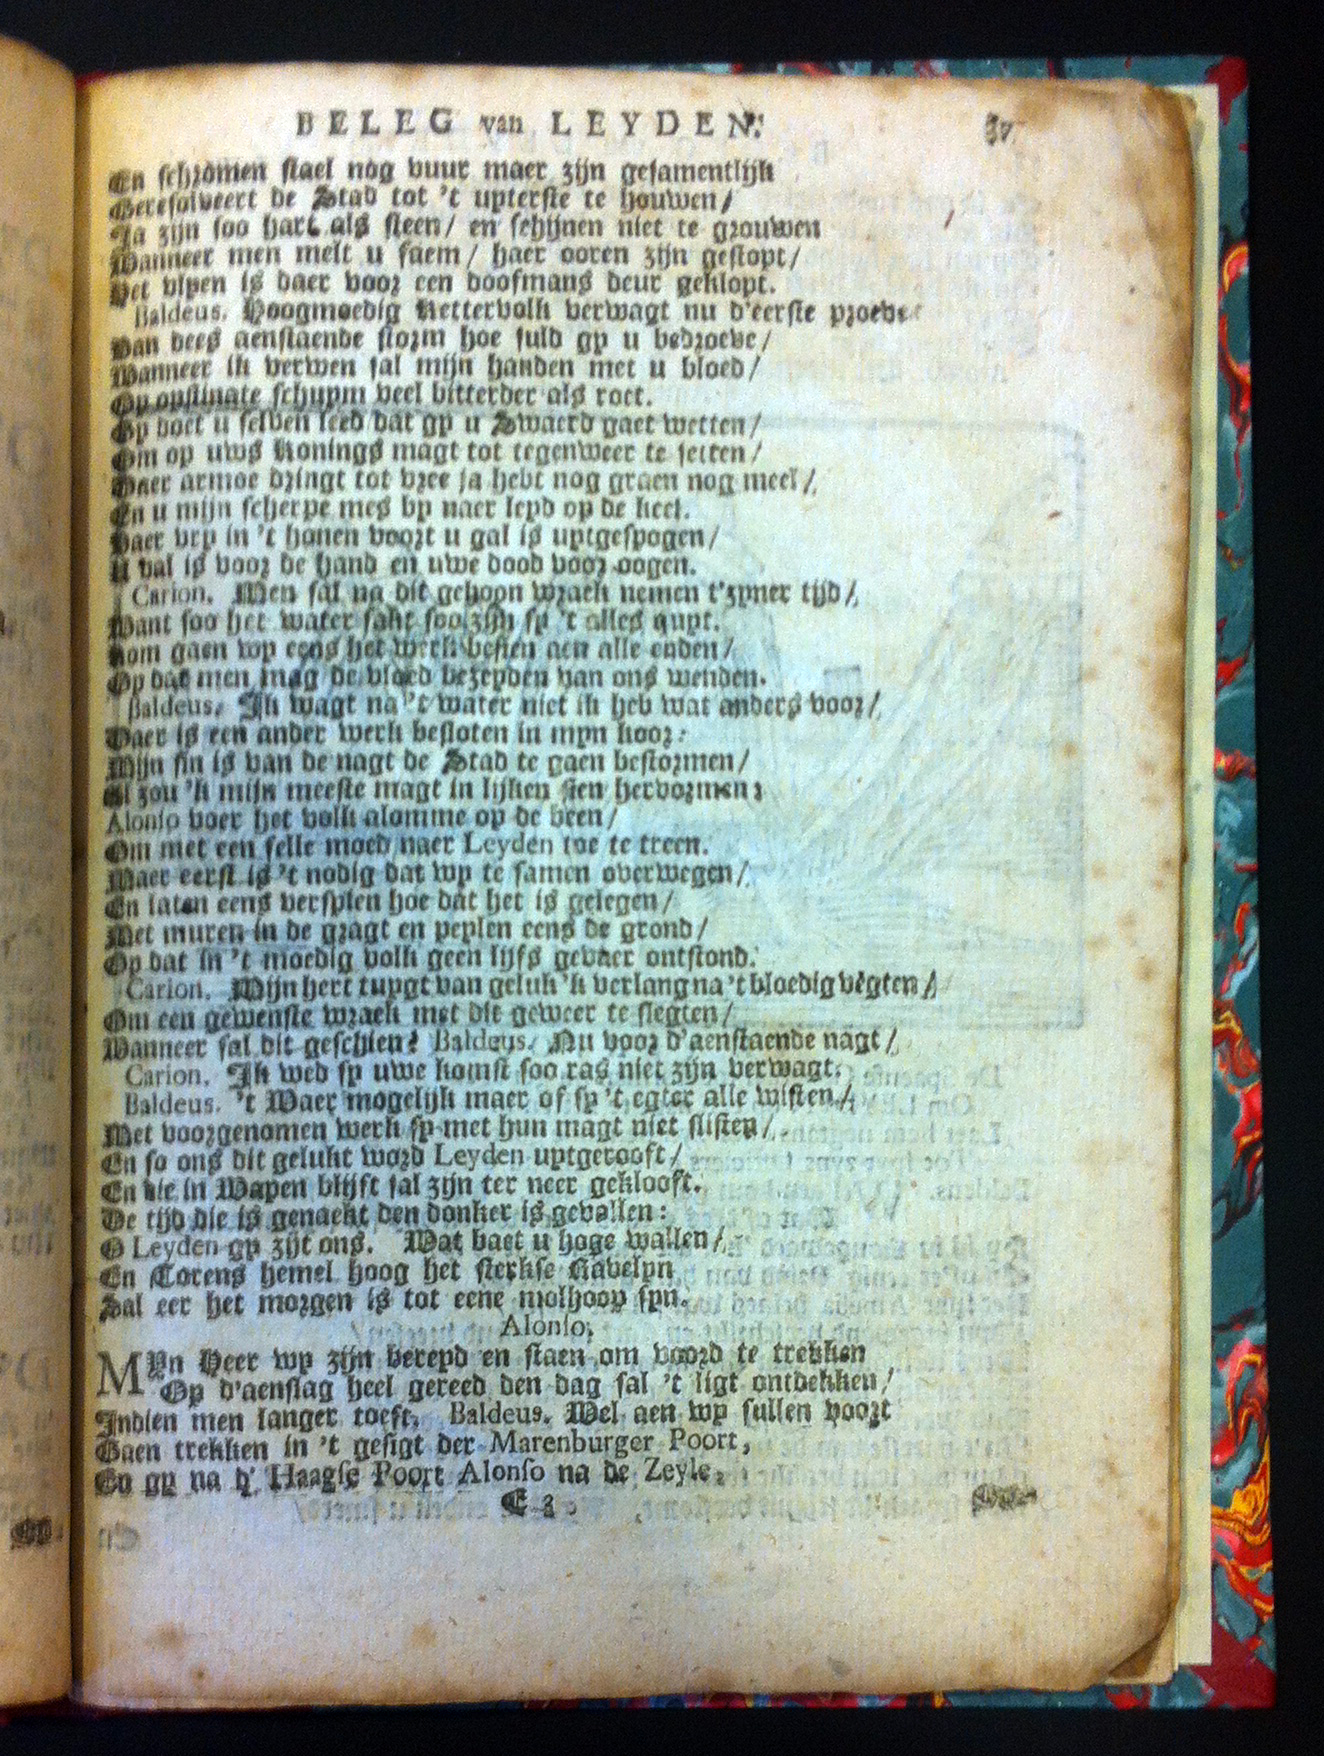 BELEG van LEYDEN. 37
En schromen stael nog vuur maer zijn gesamentlijk
Geresolveert de Stad tot 't uyterste te houwen/
Ja zijn soo hart als steen/ en schijnen niet te grouwen
Wanneer men melt u faem/ haer ooren zijn gestopt/
Het vlyen is daer voor een doofmans deur geklopt.
Baldeus. Hoogmoedig Kettervolk verwagt nu d'eerste proeve
Van dees aenstaende storm hoe suld gy u bedroeve/
Wanneer ik verwen sal mijn handen met u bloed/
Op opstinate schuym veel bitterder als roet.
Gy doet u selven leed dat gy u Swaerd gaet wetten/
Om op uws Konings magt tot tegenweer te setten/
Daer armoe dringt tot vree ja hebt nog graen nog meel/
En u mijn scherpe mes vy naer leyd op de keel.
Daer vry in 't honen voort u gal is uytgespogen/
U val is voor de hand en uwe dood voor oogen.
Carion. Men sal na dit gehoon wraek nemen t'zyner tijd/
Want soo het water sakt soo zijn sy 't alles quyt.
Kom gaen wy eens het werk besien aen alle enden/
Op dat men mag de vloed bezeyden van ons wenden.
Baldeus. Ik wagt na 't water niet ik heb wat anders voor/
Daer is een ander werk besloten in myn koor:
Mijn sin is van de nagt de Stad te gaen bestormen/
Al zou 'k mijn meeste magt in lijken sien hervormen;
Alonso voer het volk alomme op de been/
Om met een felle moed naer Leyden toe te treen.
Maer eerst is 't nodig dat wy te samen overwegen/
En laten eens verspien hoe dat het is gelegen/
Met muren in de gragt en peylen eens de grond/
Op dat in 't moedig volk geen lijfs gevaer ontstond.
Carion. Mijn hert tuygt van geluk 'k verlang na 't bloedig vegten/
Om een gewenste wraek met dit geweer te slegten/
Wanneer sal dit geschien? Baldeus. Nu voor d'aenstaende nagt/
Carion. Ik wed sy uwe komst soo ras niet zijn verwagt.
Baldeus. 't Waer mogelijk maer of sy 't egter alle wisten/
Met voorgenomen werk sy met hun magt niet slisten/
En so ons dit gelukt word Leyden uytgerooft/
En die in Wapen blijft sal zijn ter neer geklooft.
De tijd die is genaekt den donker is gevallen:
O Leyden gy zijt ons. Wat baet u hoge wallen/
En Torens hemel hoog het sterkse Ravelyn
Sal eer het morgen is tot eene molhoop syn.
Alonso.
MYn Heer wy zijn bereyd en staen om voord te trekken
Op d'aenslag heel gereed den dag sal 't ligt ontdekken/
Indien men langer toeft. Baldeus. Wel aen wy sullen voort
Gaen trekken in 't gesigt der Marenburger Poort,
En gy na d' Haagse Poort Alonso na de Zeyle,
E 3